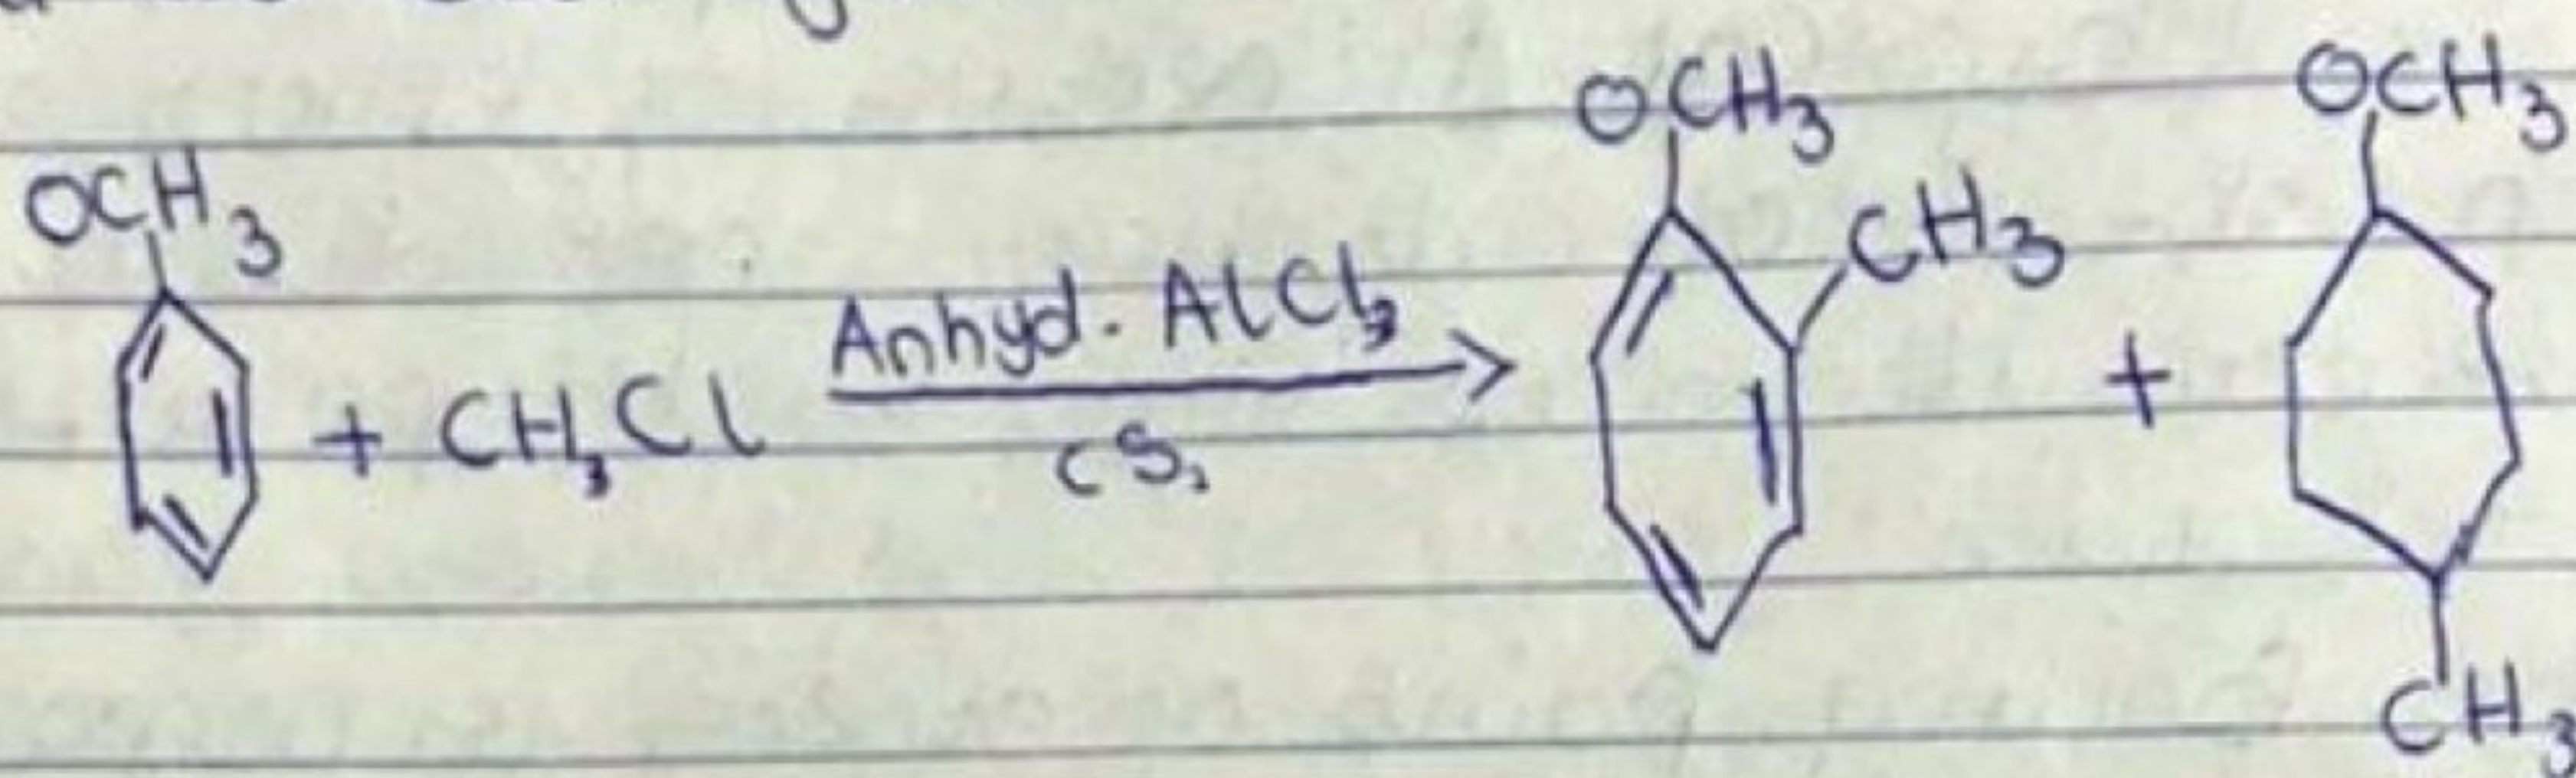 OCH3
+ CH3Cl
Anhyd. AlCl3
CS2
OCH3
CH3
+
OCH3
CH3